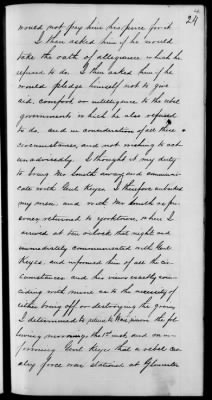 24
would not pay him his price for it.
I then asked him if he would
take the oath of allegiance which he
refused to do. I then asked him if he
would pledge himself not to give
aid, comfort or intelligence to the rebel
government which he also refused
to do, and in consideration of all these
circumstances, and not wishing to act
unadvisedly I thought it my duty
to bring Mr Smith away and communi
cate with Genl Keyes. I therefore embarked
my men and with Mr Smith as pri
soner returned to Yorktown, where I
arrived at ten o'clock that night and
immediately communicated with Genl
Keyes, and informed him of all the cir
cumstances and his views exactly coin
ciding with mine as to the necessity of
either bring off or destroying the grain
I determined to return to Ware river the fol
lowing morning, the 1st inst, and on in
forming Genl Keyes that a rebel cav
alry force was stationed at Gloucester